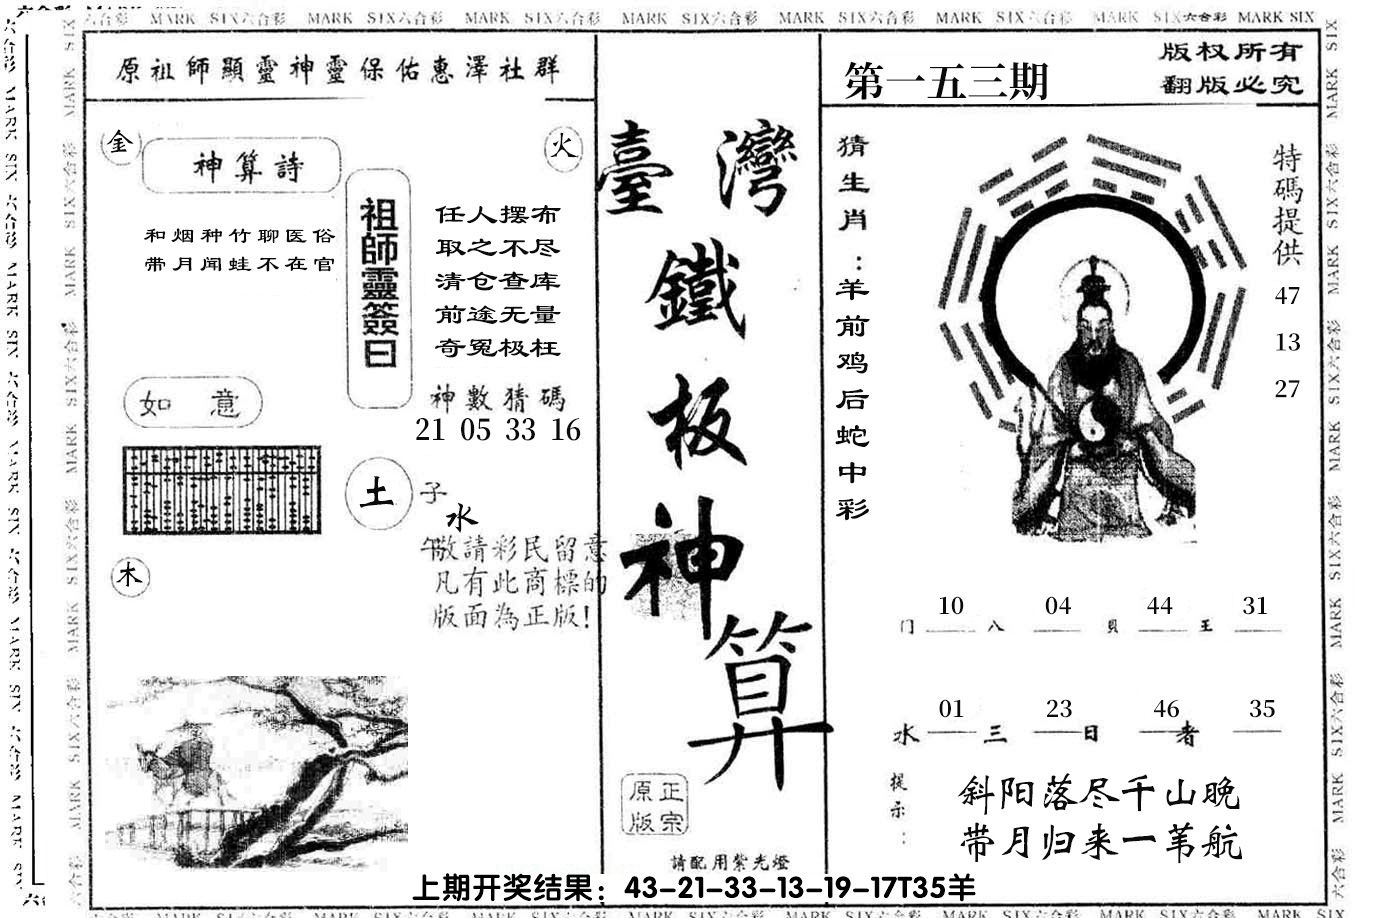 MARK SIX六合彩 MARK SIX六合彩 MARK SIX六合彩 MARK SIX六合彩 MARK SIX六合彩 MARK SIX六合彩 MARK SIX六合彩 MARK SIX
原祖師顯靈神靈保佑惠澤社群
金
火
神算詩
和烟种竹聊医俗
带月闻蛙不在官
祖師靈簽曰
任人摆布
取之不尽
清仓查库
前途无量
奇冤极枉
神數猜碼
21 05 33 16
如意
土
子
水
午
木
敬請彩民留意
凡有此商標的
版面為正版!
臺灣
鐵
板
神
算
正宗
原版
請配用紫光燈
第一五三期
版权所有
翻版必究
猜生肖:羊前鸡后蛇中彩
特碼提供
47
13
27
10 04 44 31
门 八 貝 王
01 23 46 35
水 三 日 者
提示:
斜阳落尽千山晚
带月归来一苇航
上期开奖结果：43-21-33-13-19-17T35羊